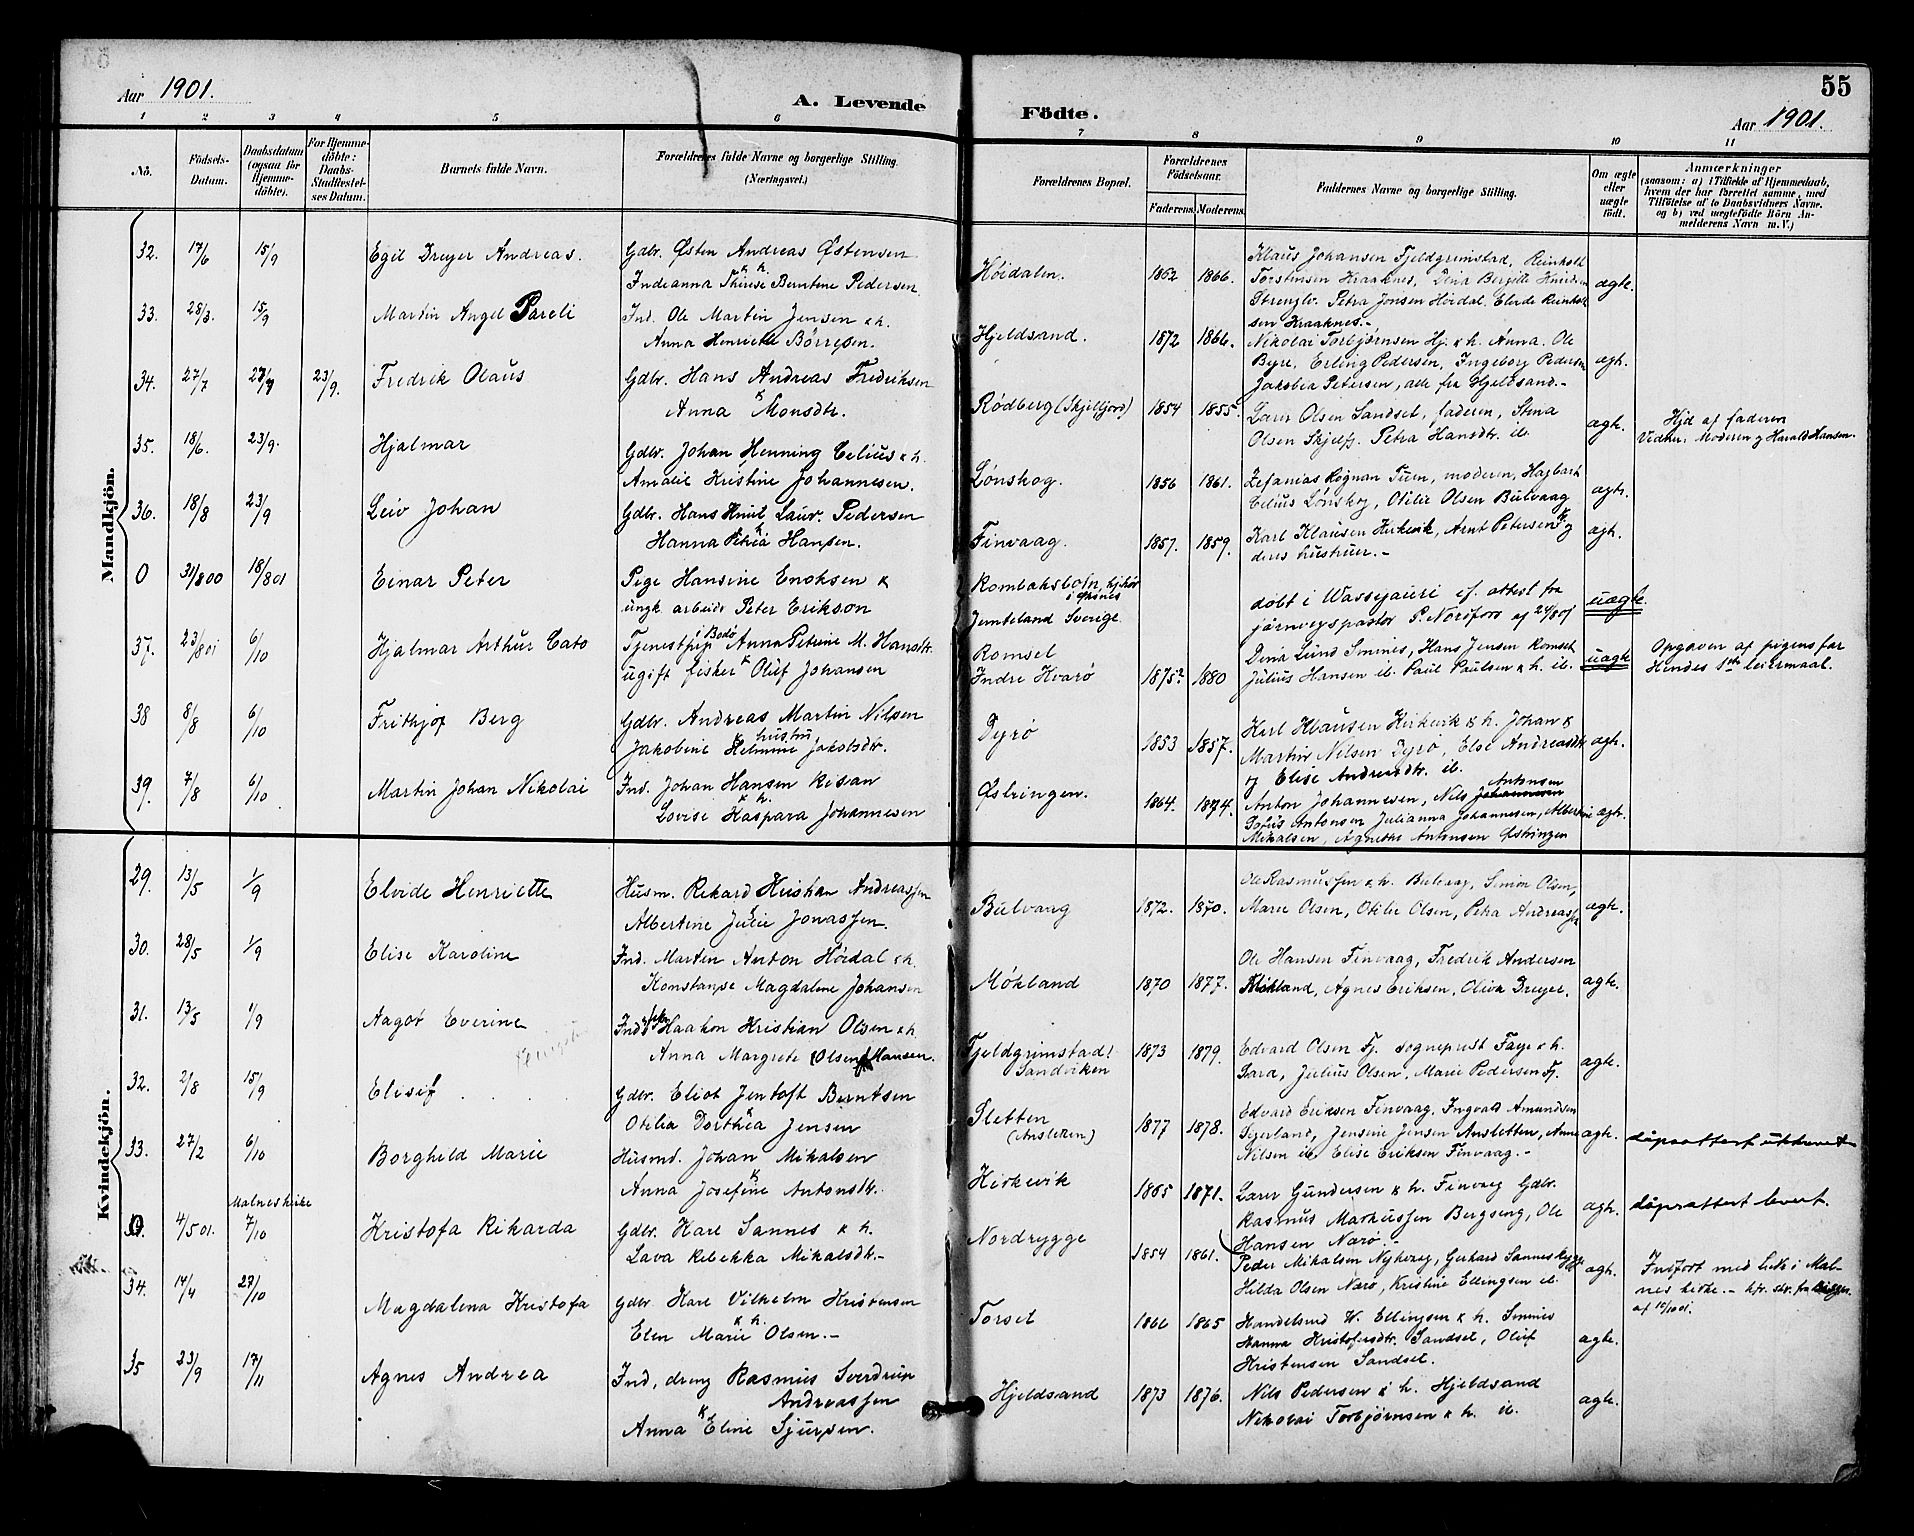 Aar 1901.
A. Levende
Födte.
55
Aar 1901.
1 2 3 4 5 6 7 8 9 10 11
No.
Födsels-Datum.
Daabsdatum (ogsaa for Hjemme-döbte).
For Hjemme-döbte: Daabs-Stadfæstel-ses Datum.
Barnets fulde Navn.
Forældrenes fulde Navne og borgerlige Stilling.
(Næringsvei.)
Forældrenes Bopæl.
Forældrenes Födselsaar.
Faderens. Moderens.
Faddernes Navne og borgerlige Stilling.
Om ægte eller uægte födt.
Anmærkninger
(saasom: a) i Tilfælde af Hjemmedaab, hvem der har forrettet samme, med Tilföielse af to Daabsvidners Navne. og b) ved uægtefödte Börn An-melderens Navn m. V.)
Mandkjön.
32. 17/6 15/9 Egil Dreyer Andreas. Gdbr. Østen Andreas Østensen
& h. Indianna Therese Berntine Pedersen
Høidalen. 1862 1866.
Klaus Johansen Fjeldgrimstad, Reinholt
Torstensen Kraaknes, Dina Birgitte Knudsen
Strengelv. Petra Jensen Høidal, Elvide Reinholt
sen Kraaknes.-
ægte.
33. 28/3. 15/9 Martin Angel Pareli Ind. Ole Martin Jensen & h.
Anna Henriette Börresen.
Hjeldsand. 1872 1866.
Nikolai Torbjørnsen Hj. & h. Anna. Ole
Byre, Erling Pedersen, Ingeborg Pedersen
Jakobia Petersen, alle fra Hjeldsand.-
ægte.
34. 27/7 23/9 23/9. Fredrik Olaus Gdbr. Hans Andreas Fredriksen
& Anna Monsdtr.
Rødberg (Skjelfjord) 1854 1855.
Larer Olsen Sandset, faderen, Stina
Olsen Skjelfj. Petra Hansdtr. ib.
ægte.
Hjd af faderen
Vidner: Moderen og Harald Hansen.
35. 18/6. 23/9. Hjalmar Gdbr. Johan Henning Celius & h.
Amalie Kristine Johannesen.
Lønskog. 1856 1861.
Zefanias Rognan Tuen, moderen, Hagbart
Celius Lønskog, Otilie Olsen Bulvaag
ægte.
36. 18/8 23/9 Leiv Johan Gdbr. Hans Knut Laur. Pedersen
& Hanna Petrea Hansen.
Finvaag. 1857. 1859.
Karl Klausen Kirkevik, Arnt Petersen og
deres hustruer.-
ægte.
0 31/800 18/801 Einar Peter Pige Hansine Enoksen &
ungk. arbeider Peter Erikson
Rombaksbotn, hjhør
i Øksnes
Jemteland Sverige.
döbt i Wassijauri cf. attest fra
järnvegspastor P. Nordfors af 24/801
uægte.
37. 23/801 6/10 Hjalmar Arthur Cato Tjenestpige i Bodø Anna Petrine M. Hansdtr.
& ugift fisker Oluf Johansen
Romset
Indre Kvarø 1875? 1880
Dina Lund Smines, Hans Jensen Romset
Julius Hansen ib. Paul Paulsen & h. ib.
uægte
Opgaven af pigens far
Hendes 1ste leiermaal.
38 8/8 6/10 Frithjof Berg Gdbr. Andreas Martin Nilsen
hustru Jakobine Helmine Jakobsdtr.
Dyrø 1853 1857.
Karl Klausen Kirkevik & h. Johan &
Martin Nilsen Dyrø, Else Andreasdtr
og Elise Andreasdtr. ib.
ægte.
39. 7/8 6/10 Martin Johan Nikolai Ind. Johan Hansen Risan
& h. Lovise Kaspara Johannesen
Østringen. 1864. 1874.
Antonsen
Anton Johannesen, Nils Johannesen
Antonsen Julianna Johannesen, Albertine
Mikalsen, Agnethe Antonsen Østringen
ægte.
Kvindekjön.
29. 13/5 1/9 Elvide Henriette Husm. Rikard Kristian Andreassen
Albertine Julie Jonassen.
Bulvaag 1872. 1870.
Ole Rasmussen & h. Bulvaag, Simon Olsen,
Marie Olsen, Otilie Olsen, Petra Andreassen
ægte.
30. 28/5 1/9 Elise Karoline Ind. Marten Anton Høidal & h.
Konstanse Magdalene Johansen
Mökland 1870 1877.
Ole Hansen Finvaag, Fredrik Andersen
Mökland, Agnes Eriksen, Oliva Dreyer.
ægte.
31. 13/5 1/9 Aagot Everine Ind. Haakon Kristian Olsen & h.
Anna Margrete Olsen f. Hansen.
Fjeldgrimstad!
Sandviken 1873 1879.
Edvard Olsen Fj. sogneprest Faye & h.
Sara, Julius Olsen, Marie Pedersen Fj.
ægte.
32. 2/8 15/9 Elisif Gdbr. Eliot Jentoft Berntsen
& Otilia Dorthea Jensen
Sletten
(Ansletten) 1877 1878.
Edvard Eriksen Finvaag. Ingvald Amundsen
Sejerland, Jensine Jensen Ansletten, Anne
Nilsen ib. Elise Eriksen Finvaag.-
ægte.
dåpsattest utskrevet
33. 27/2 6/10 Borghild Marie Husmd. Johan Mikalsen
& Anna Josefine Antonsdtr.
Kirkevik 1865 1871.
Larer Gundersen & h. Finvaag Gdbr.
Rasmus Markussen Bergseng, Ole
Hansen Narø.-
ægte.
dåpsattest levert.
Malnes kirke
0. 4/501. 7/10 Kristofa Rikarda Gdbr. Karl Sannes & h.
Lava Rebekka Mikalsdtr.-
Nordrygge 1854 1861.
Peder Mikalsen Nykvaag, Gerhard Sannes Rygge
Hilda Olsen Narø, Kristine Ellingsen ib.
ægte.
Indført med heb. i Mal-
nes kirke.-
af 10/1001.
34. 14/4 27/10 Magdalena Kristofa Gdbr. Karl Vilhelm Kristensen
& h. Elen Marie Olsen.-
Torset 1866 1865
Handelsmd W. Ellingsen & h. Smines
Hanna Kristofersdtr. Sandset, Oluf
Kristensen Sandset.
ægte.
35 23/9 17/11 Agnes Andrea Ind. dreng Rasmus Sverdrup
Andreassen
& Anna Eline Sjursen.
Hjeldsand 1873 1876.
Nils Pedersen & h. Hjeldsand
Nikolai Torbjørnsen & h. ib.
ægte.